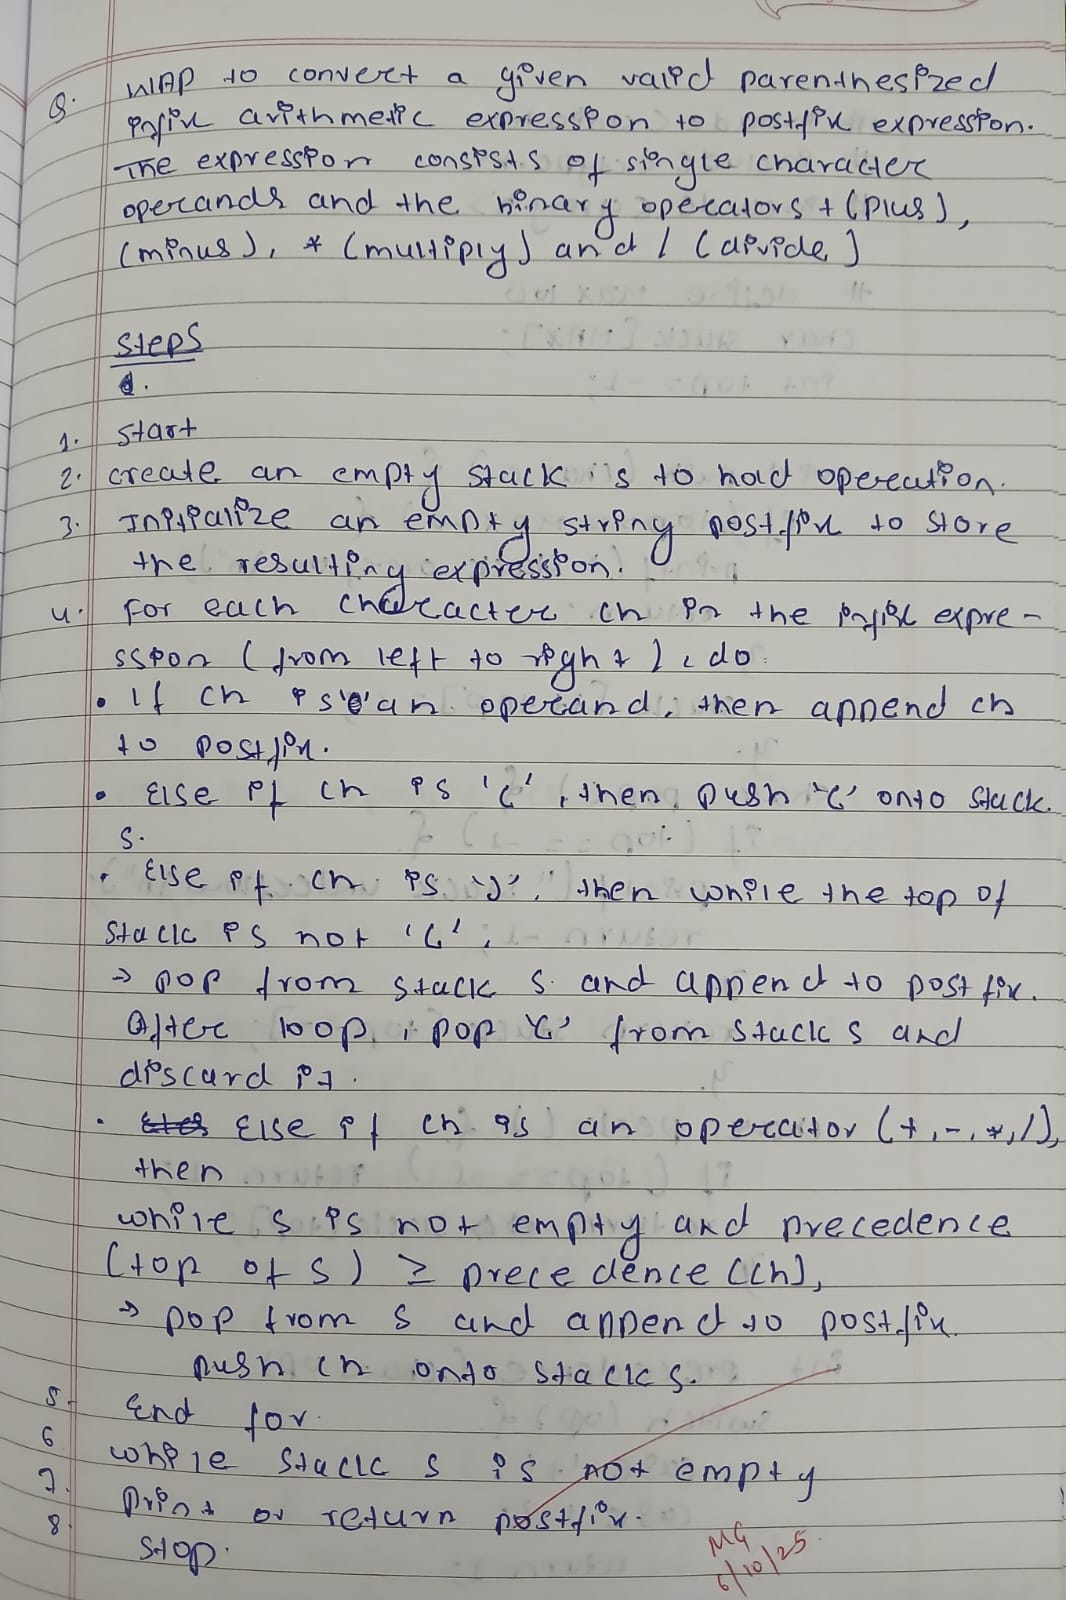 Q. WAP to convert a given valid parenthesized
infix arithmetic expression to postfix expression.
The expression consists of single character
operands and the binary operators + (plus),
(minus), * (multiply) and / (divide)
Steps
1.
1. Start
2. create an empty stack is to hold operation.
3. Initialize an empty string postfix to store
the resulting expression.
4. For each character ch in the infix expre-
ssion (from left to right), do
• If ch is an operand, then append ch
to postfix.
• Else if ch is '(', then push '(' onto stack
s.
• Else if ch is ')', then while the top of
stack is not '(',
→ pop from stack s and append to postfix.
After loop, pop '(' from stack s and
discard it.
• Else if ch is an operator (+,-,*,/),
then
while s is not empty and precedence
(top of s) ≥ precedence (ch),
→ pop from s and append to postfix.
push ch onto stack s.
5. End for.
6 while stack s is not empty
7. Print or return postfix.
8. Stop.
MG
6/10/25